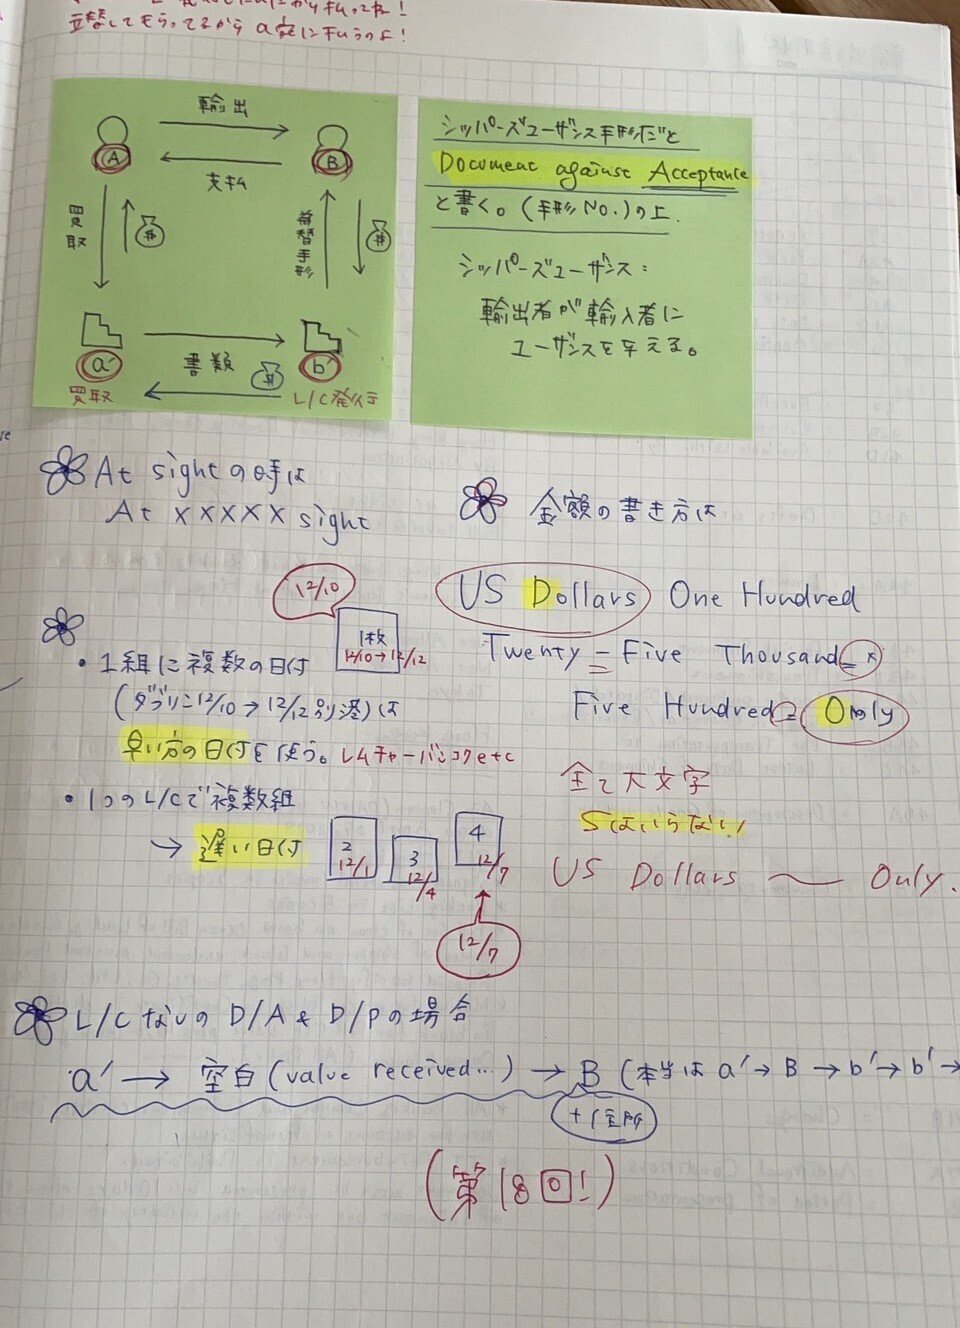 立替してもらってるから a'に払うのよ!
輸出
A
B
支払
買取
$
為替手形
$
a'
書類
$
b'
買取
L/C発行
シッパーズユーザンス手形だと
Document against Acceptance
と書く。(手形No.)の上.
シッパーズユーザンス:
輸出者が輸入者に
ユーザンスを与える。
At sightの時は
At XXXXX sight
金額の書き方は
US Dollars One Hundred
Twenty=Five Thousand=×
Five Hundred= Only
全て大文字
Sはいらない!
US Dollars 〜 Only.
12/10
1枚
12/10→12/12
・1組に複数の日付
(ダブリン12/10→12/12別港)は
早い方の日付を使う。レムチャーバンコクetc
・1つのL/Cで複数組
→ 遅い日付
2
12/1
3
12/4
4
12/7
12/7
L/CなしのD/A & D/Pの場合
a' → 空白(value received...) → B (本当は a'→B→b'→b'→
+住所
(第18回!)